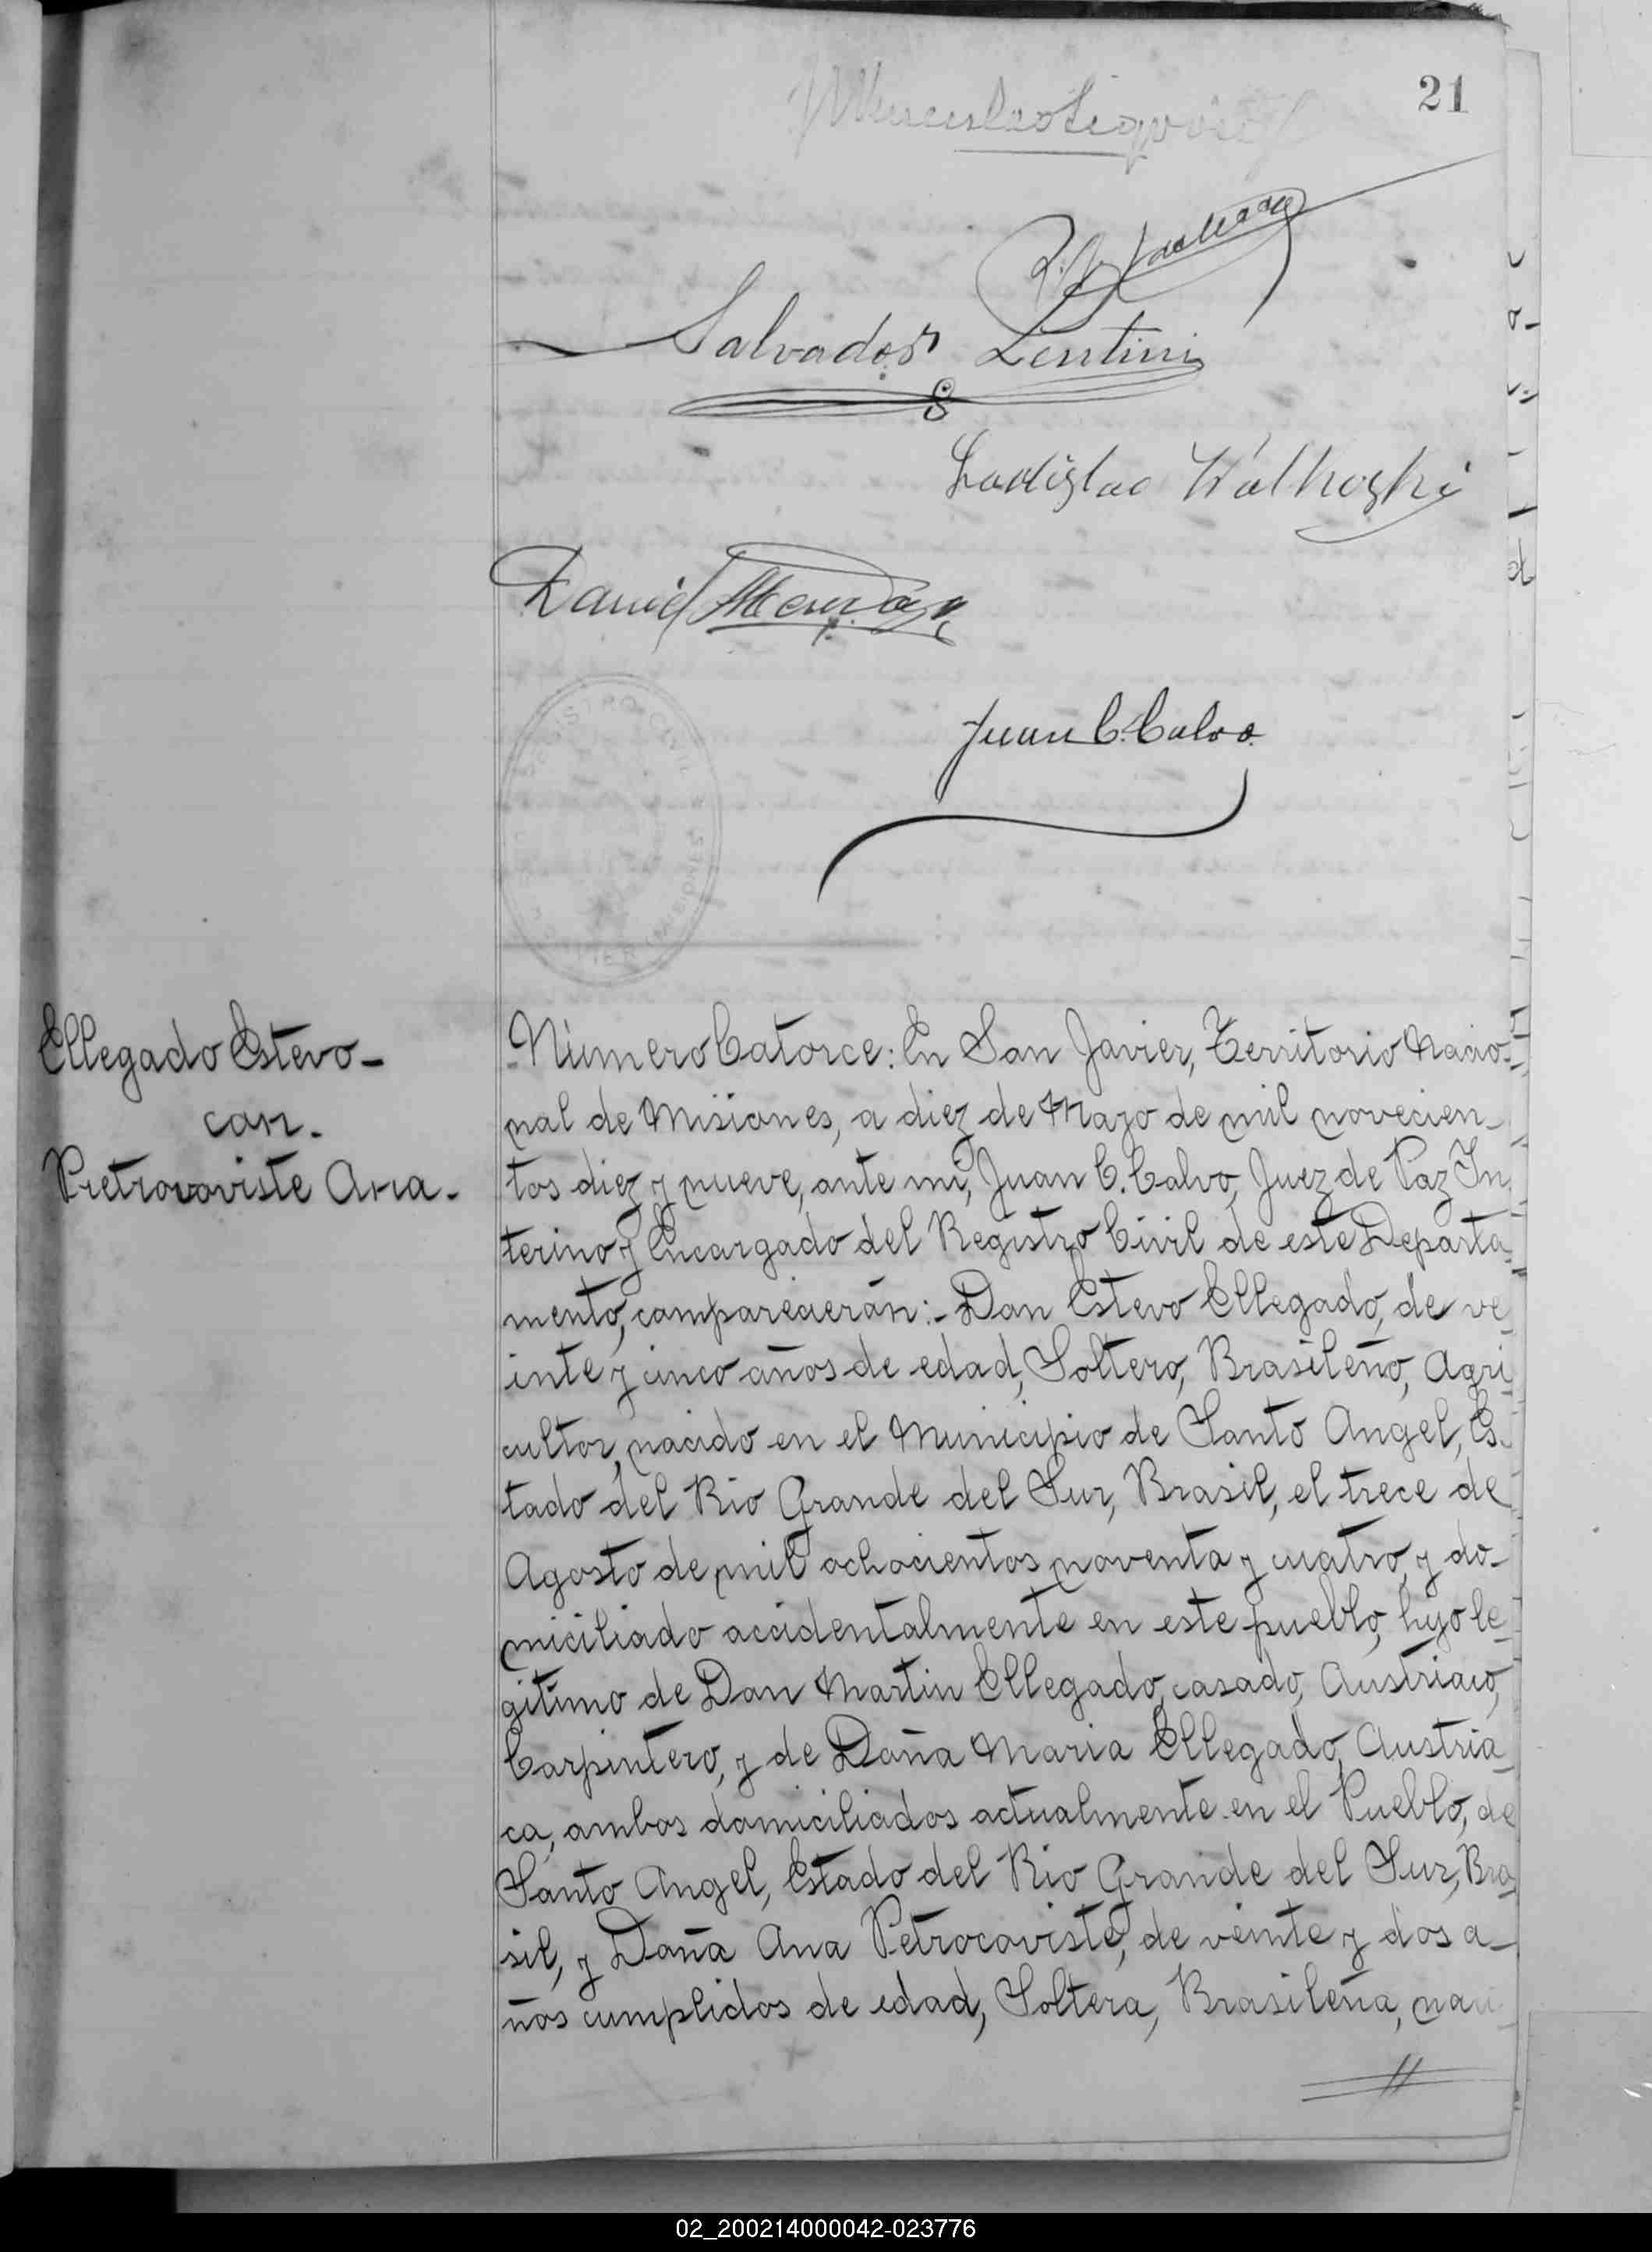 21
Salvador Lentini
Ladislao Walkoski
Daniel
Juan C. Calvo.
REGISTRO CIVIL
MISIONES
Ellegado Estevo-
con.
Pretrovoviste Ana.
Número Catorce: En San Javier, Territorio Nacio-
nal de Misiones, a diez de Mayo de mil novecien-
tos diez y nueve, ante mi, Juan C. Calvo, Juez de Paz In-
terino y Encargado del Registro Civil de este Departa-
mento, comparecierán:- Don Estevo Ellegado, de ve-
inte y cinco años de edad, Soltero, Brasileño, Agri-
cultor, nacido en el Municipio de Santo Angel, Es-
tado del Rio Grande del Sur, Brasil, el trece de
Agosto de mil ochocientos noventa y cuatro, y do-
miciliado accidentalmente en este pueblo, hijo le-
gitimo de Don Martin Ellegado, casado, Austriaco,
Carpintero, y de Doña Maria Ellegado, Austria-
ca, ambos domiciliados actualmente en el Pueblo, de
Santo Angel, Estado del Rio Grande del Sur, Bra-
sil, y Doña Ana Petrocoviste, de veinte y dos a-
ños cumplidos de edad, Soltera, Brasileña, naci-
02_200214000042-023776